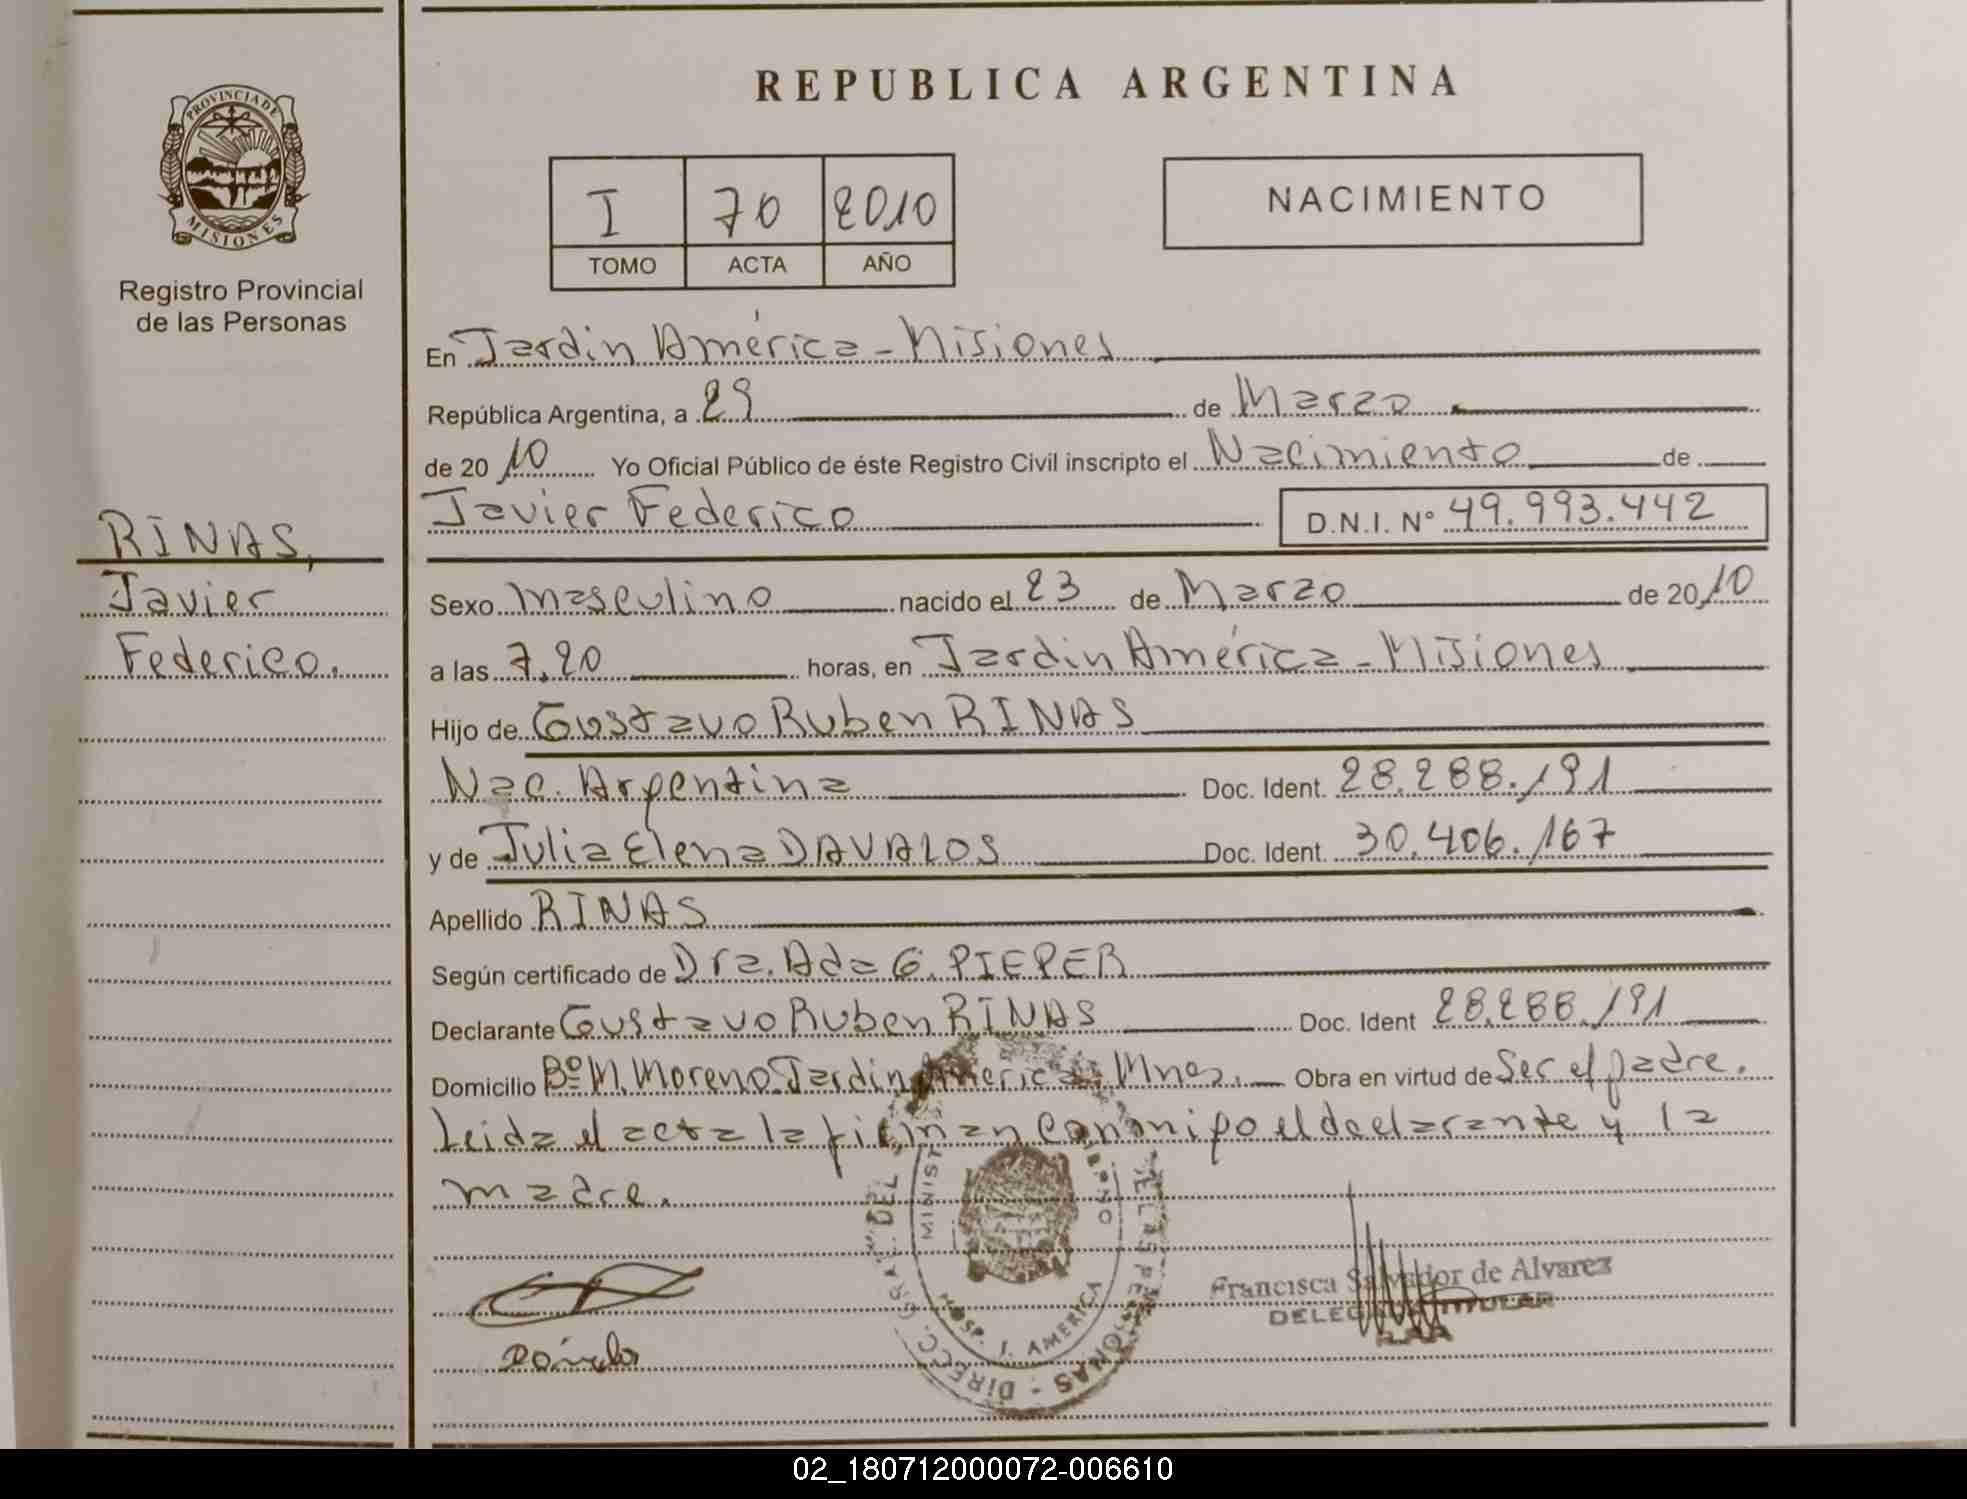 PROVINCIA DE
MISIONES
Registro Provincial
de las Personas
RINAS,
Javier
Federico.
REPUBLICA ARGENTINA
I 70 2010
TOMO ACTA AÑO
NACIMIENTO
En Jardin América - Misiones
República Argentina, a 29 de Marzo
de 20 10 Yo Oficial Público de éste Registro Civil inscripto el Nacimiento de
Javier Federico D.N.I. Nº 49.993.442
Sexo Masculino nacido el 23 de Marzo de 20 10
a las 7,20 horas, en Jardin América - Misiones
Hijo de Gustavo Ruben RINAS
Nac. Argentina Doc. Ident. 28.288.191
y de Julia Elena DAVALOS Doc. Ident. 30.406.167
Apellido RINAS
Según certificado de Dra. Ada G. PIEPER
Declarante Gustavo Ruben RINAS Doc. Ident 28.288.191
Domicilio Bº M. Moreno Jardin America Mnes. Obra en virtud de Ser el padre.
Leida el acta la firman conmigo el declarante y la
madre.
DIRECC. GRAL. DEL
LAS PERSONAS
HOSP. J. AMERICA
Francisca Salvador de Alvarez
DELEGADA TITULAR
02_180712000072-006610